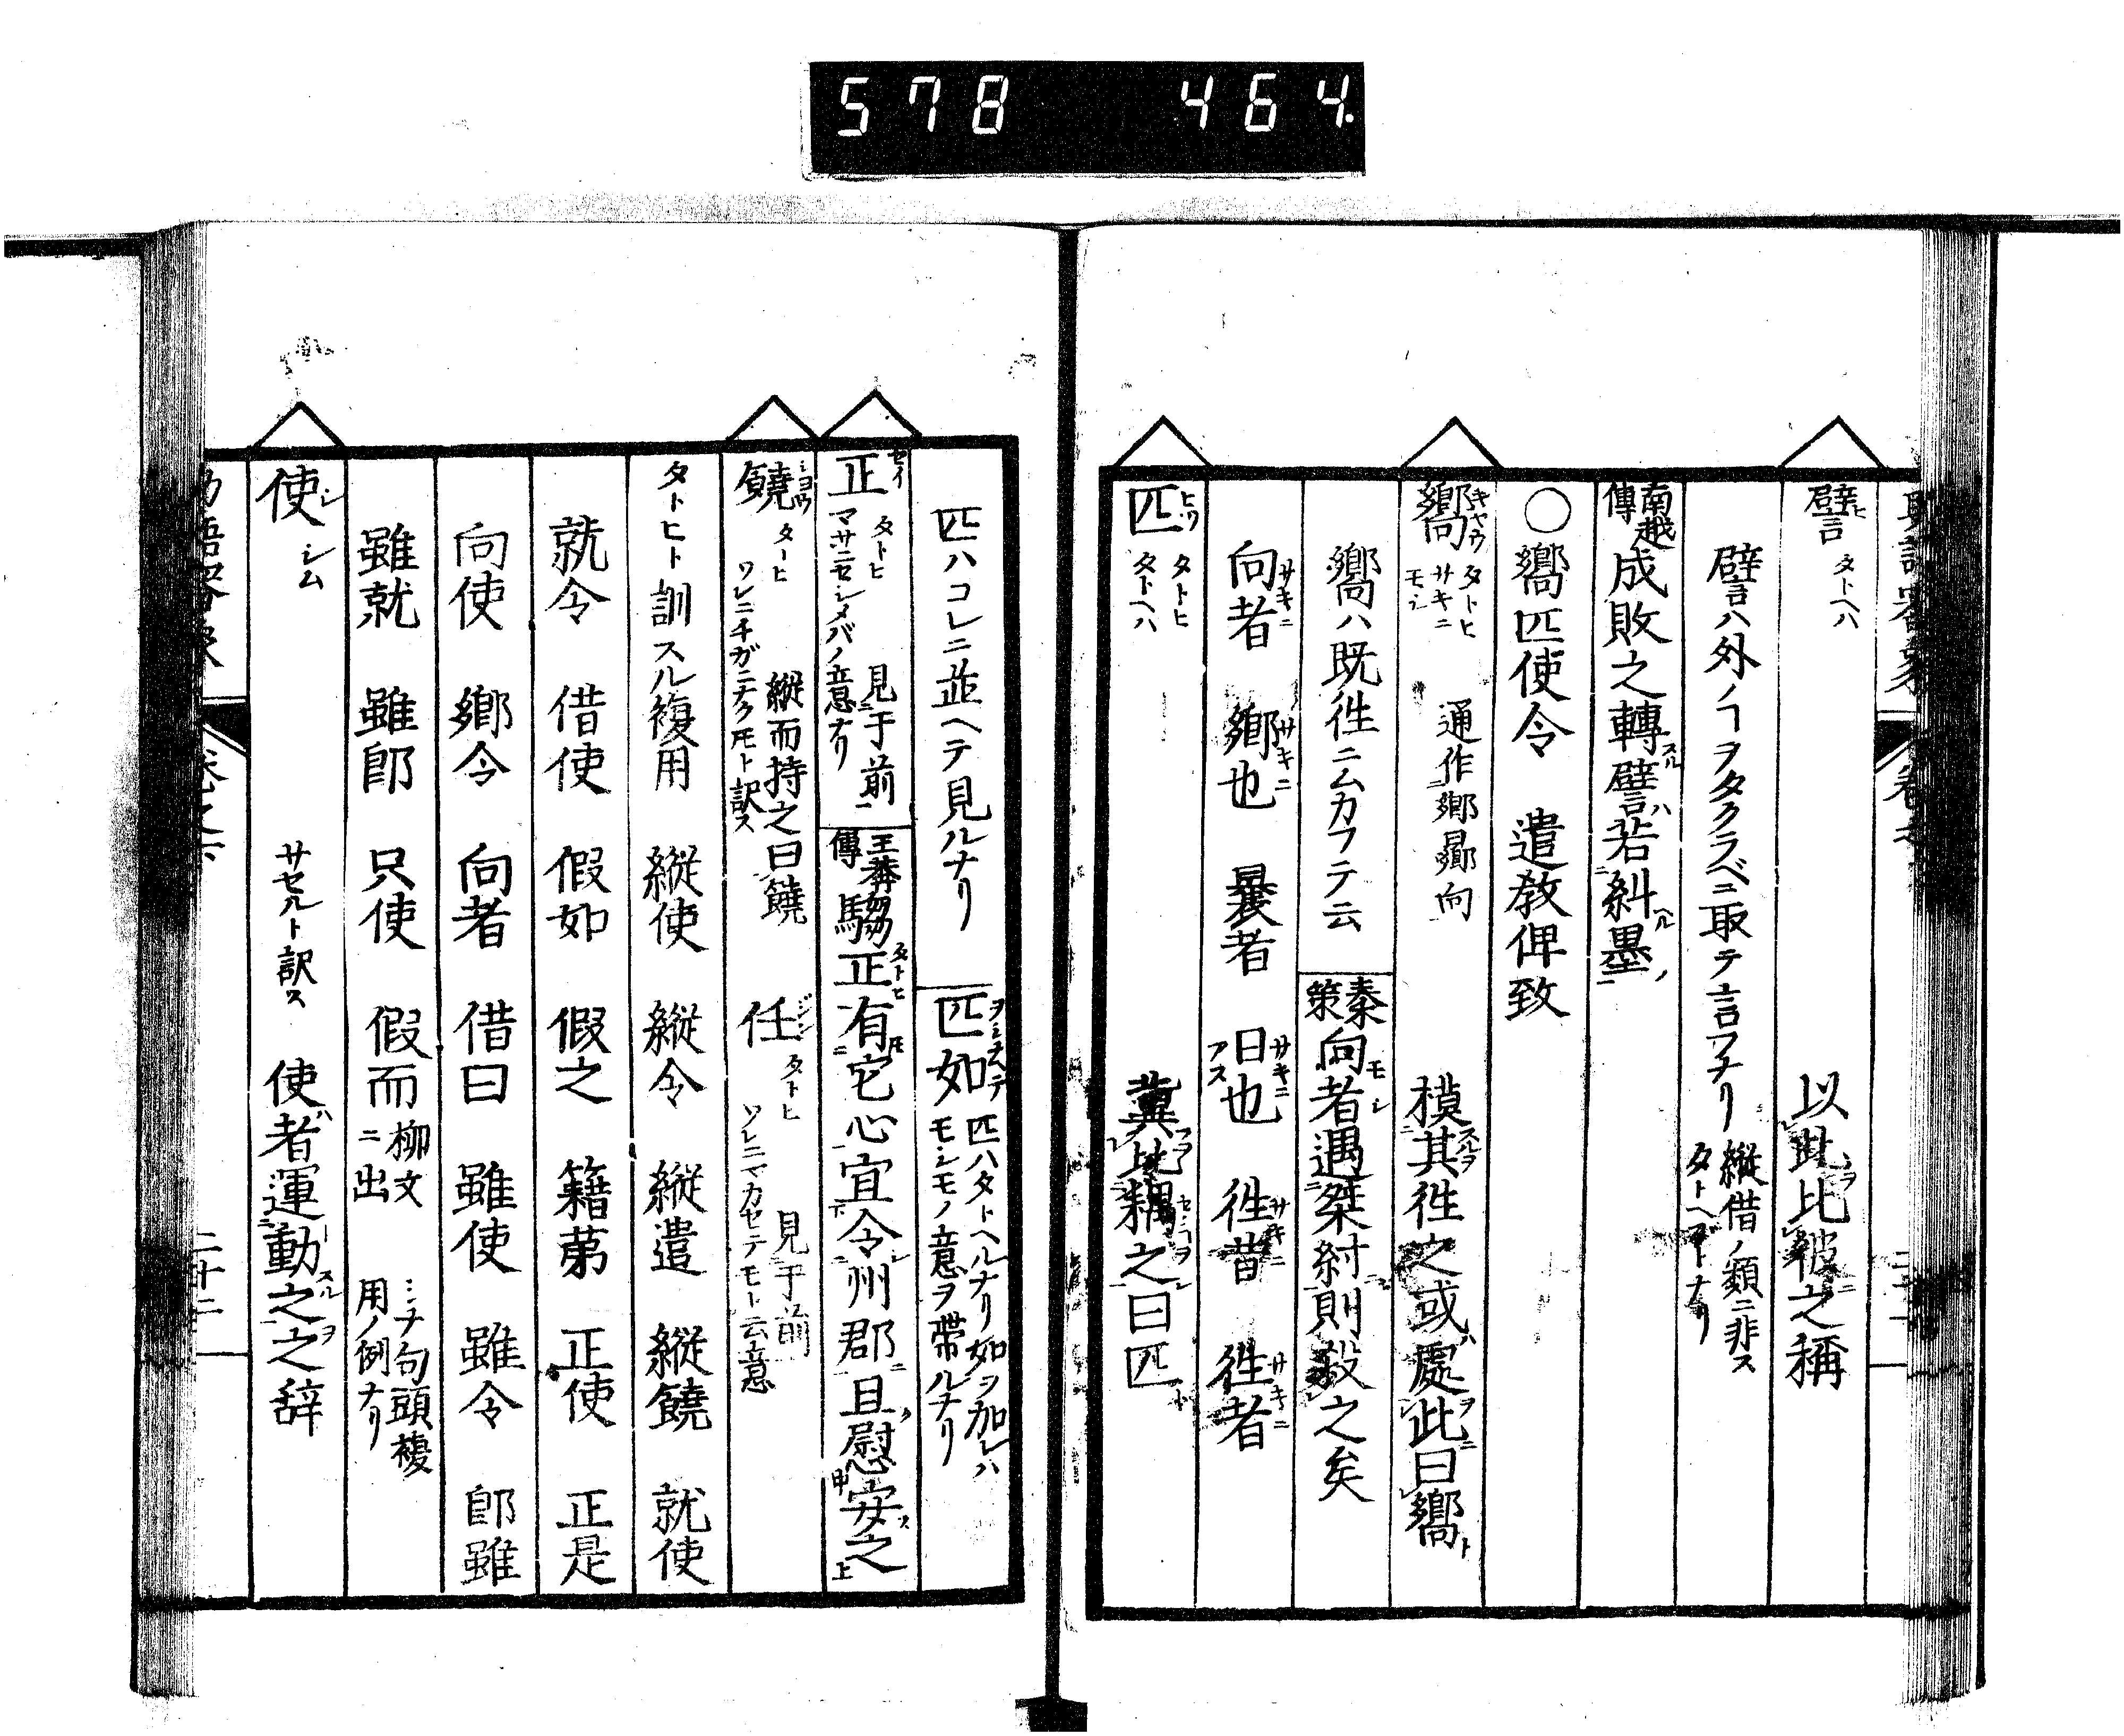 578 464.
譬 タトヘハ 以此比彼之稱
譬ハ外ノヿヲタクラベニ取テ言フナリ 縱借ノ類ニ非ス
南越傳 成敗之轉譬若糾墨
○嚮匹使令 遣敎俾致
嚮 キャウ タトヒ サキニ モシ 通作鄉曏向 模其徃之或處此曰嚮
嚮ハ既徃ニムカフテ云 秦策 向者遇桀紂則殺之矣
向者 鄉也 曩者 日也 徃昔 徃者
匹 ヒツ タトヒ タトヘハ 冀比耦之曰匹
匹ハコレニ並ヘテ見ルナリ 匹如 匹ハタトヘルナリ如ヲ加レハ
モシモノ意ヲ帶ルナリ
正 セイ タトヒ 見于前 マサニセシメバノ意ナリ 王莽傳 騶正有它心宜令州郡且慰安之
饒 タトヒ 縱而持之曰饒 ソレニチガニナクトモト訳ス 任 タトヒ 見于前 ソレニマカセテモト云意
タトヒト訓スル複用 縱使 縱令 縱遣 縱饒 就使
就令 借使 假如 假之 籍第 正使 正是
向使 鄉令 向者 借曰 雖使 雖令 卽雖
雖就 雖卽 只使 假而 柳文ニ出 ミナ句頭複用ノ例ナリ
使 シ シム サセルト訳ス 使者運動之之辞